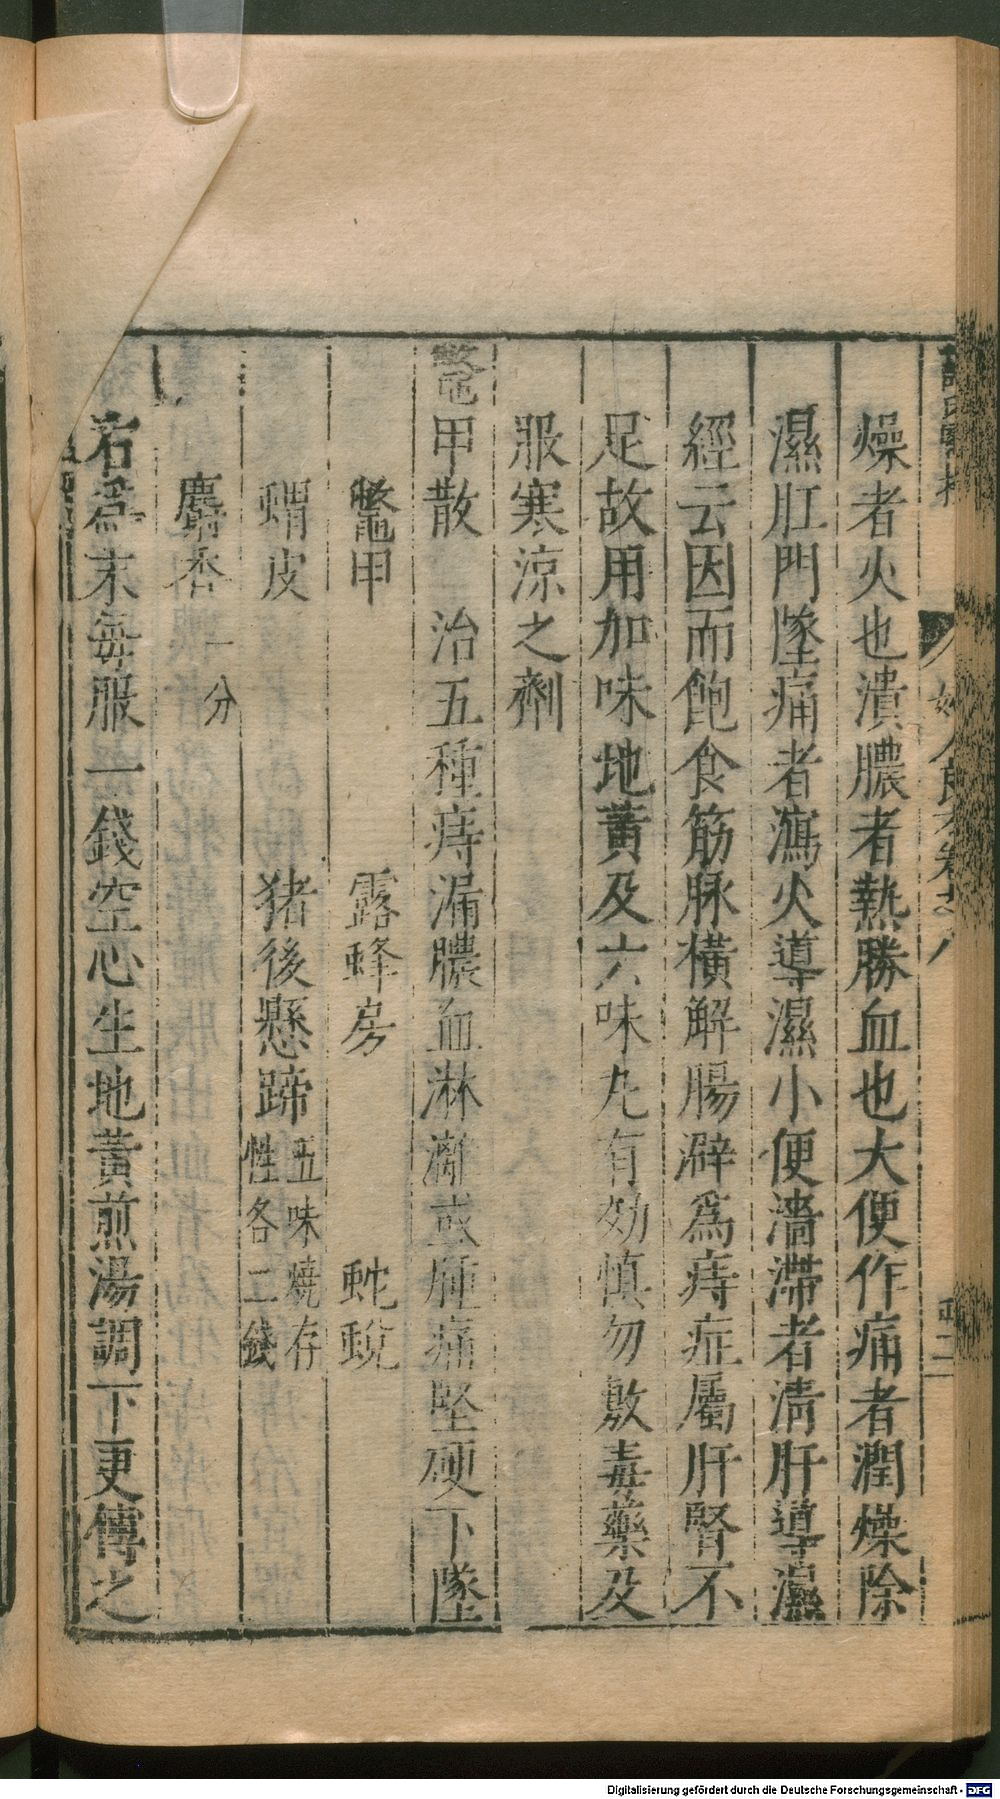 燥者火也潰膿者熱勝血也大便作痛者潤燥除
濕肛門墜痛者瀉火導濕小便濇滯者淸肝導濕
經云因而飽食筋脉橫解腸澼爲痔症屬肝腎不
足故用加味地黃及六味丸有効慎勿敷毒藥及
服寒涼之劑
鼈甲散　治五種痔漏膿血淋瀝或腫痛堅硬下墜
鼈甲　露蜂房　蛇蛻
蝟皮　猪後懸蹄五味燒存性各二錢
麝香一分
右爲末每服一錢空心生地黃煎湯調下更傅之
Digitalisierung gefördert durch die Deutsche Forschungsgemeinschaft - DFG